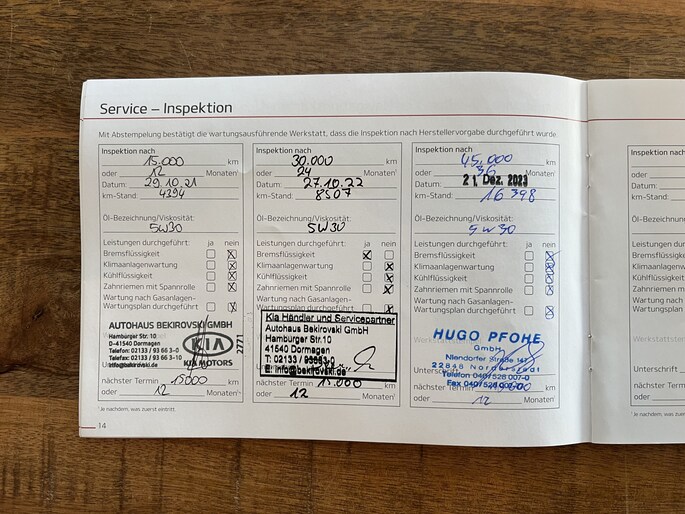 Service – Inspektion
Mit Abstempelung bestätigt die wartungsausführende Werkstatt, dass die Inspektion nach Herstellervorgabe durchgeführt wurde.
Inspektion nach
15.000 km
oder 12 Monaten¹
Datum: 29.10.21
km-Stand: 4394
Öl-Bezeichnung/Viskosität:
5W30
Leistungen durchgeführt: ja nein
Bremsflüssigkeit
Klimaanlagenwartung
Kühlflüssigkeit
Zahnriemen mit Spannrolle
Wartung nach Gasanlagen-
Wartungsplan durchgeführt
AUTOHAUS BEKIROVSKI GMBH
Hamburger Str. 10
D-41540 Dormagen
Telefon: 02133 / 93 66 3-0
Telefax: 02133 / 93 66 3-10
info@bekirovski.de
KIA
KIA MOTORS
2721
nächster Termin 15000 km
oder 12 Monaten¹
¹ Je nachdem, was zuerst eintritt.
14
Inspektion nach
30.000 km
oder 24 Monaten¹
Datum: 27.10.22
km-Stand: 8507
Öl-Bezeichnung/Viskosität:
5W30
Leistungen durchgeführt: ja nein
Bremsflüssigkeit
Klimaanlagenwartung
Kühlflüssigkeit
Zahnriemen mit Spannrolle
Wartung nach Gasanlagen-
Wartungsplan durchgeführt
Kia Händler und Servicepartner
Autohaus Bekirovski GmbH
Hamburger Str.10
41540 Dormagen
T: 02133 / 93663-0
E: info@bekirovski.de
nächster Termin 15.000 km
oder 12 Monaten¹
Inspektion nach
45.000 km
oder 36 Monaten¹
Datum: 21. Dez. 2023
km-Stand: 16 398
Öl-Bezeichnung/Viskosität:
5W30
Leistungen durchgeführt: ja nein
Bremsflüssigkeit
Klimaanlagenwartung
Kühlflüssigkeit
Zahnriemen mit Spannrolle
Wartung nach Gasanlagen-
Wartungsplan durchgeführt
HUGO PFOHE
GmbH
Niendorfer Straße 147
22848 Norderstedt
Unterschrift
Telefon 040/528 007-0
Fax 040/528 007-
nächster Termin km
oder 12 Monaten¹
Inspektion
oder
Datum:
km-Stand:
Öl-Bezeichnung
Leistungen
Bremsflüssigkeit
Klimaanlagen
Kühlflüssigkeit
Zahnriemen
Wartung nach
Wartungsplan
Werkstattstempel
Unterschrift
nächster Termin
oder
¹ Je nachdem, was